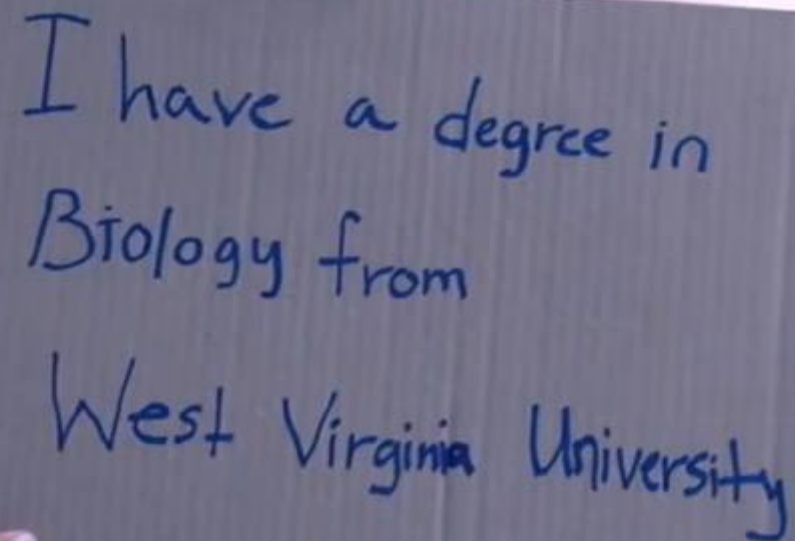 I have a degree in
Biology from
West Virginia University